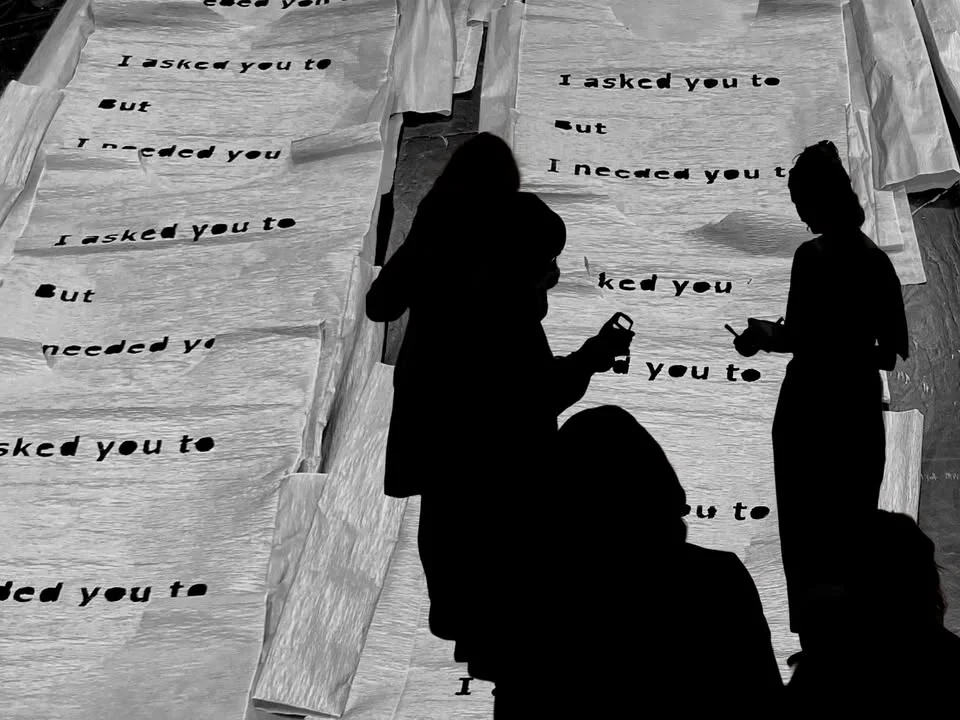 eded you
I asked you to
But
I needed you
I asked you to
But
needed y
sked you to
ded you to
I asked you to
But
I needed you t
ked you
d you to
u to
I